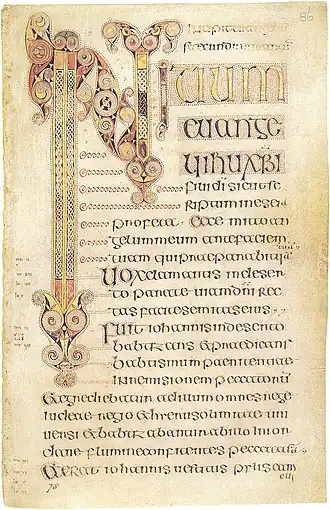 86
secundum
initium
euange
lii ihu xpi
filii di sicut sc
riptum in eseia
profeta Ecce mitto an
gelum meum ante faciem
tuam qui praeparabit uiam
uox clamantis in deser
to parate uiam dni rec
tas facite semitas eius
fuit iohannis in deserto
babtizans et praedicans
babtismum paenitentiae
in remisionem peccatorum
et egrediebatur ad illum omnes
iudeae regio et hierusolimitae uni
uersi et babtizabantur ab illo in ior
dane flumine confitentes peccata sua
et erat iohannis uestitus pylis cam
eli